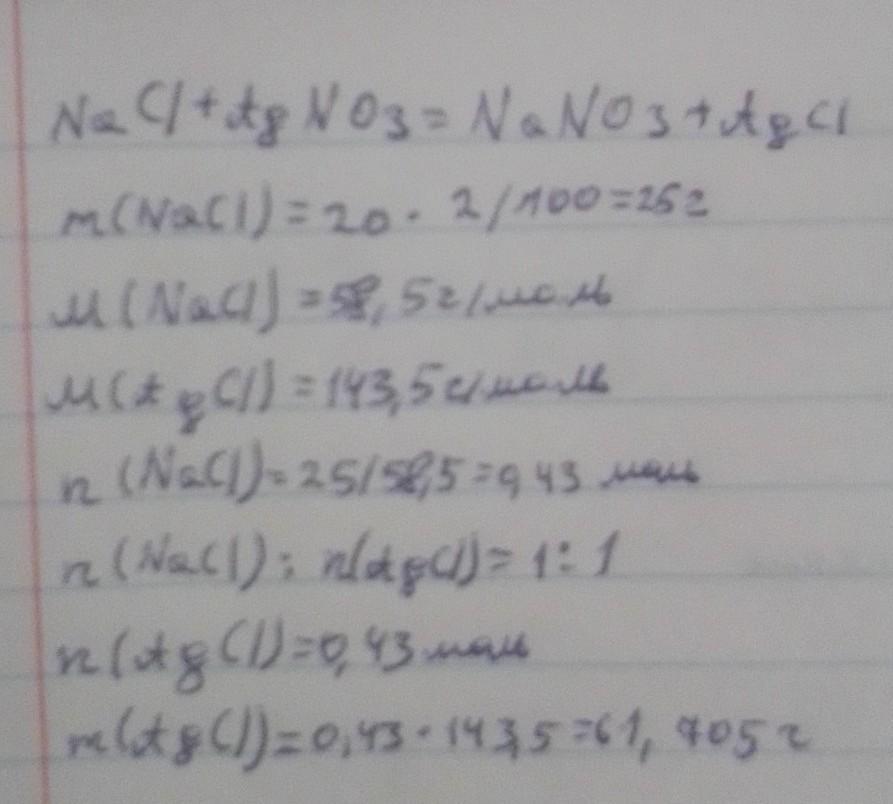 NaCl + AgNO3 = NaNO3 + AgCl
m(NaCl) = 20 · 2/100 = 25г
M(NaCl) = 58,5г/моль
M(AgCl) = 143,5г/моль
n(NaCl) = 25/58,5 = 0,43 моль
n(NaCl) : n(AgCl) = 1 : 1
n(AgCl) = 0,43 моль
m(AgCl) = 0,43 · 143,5 = 61,705г